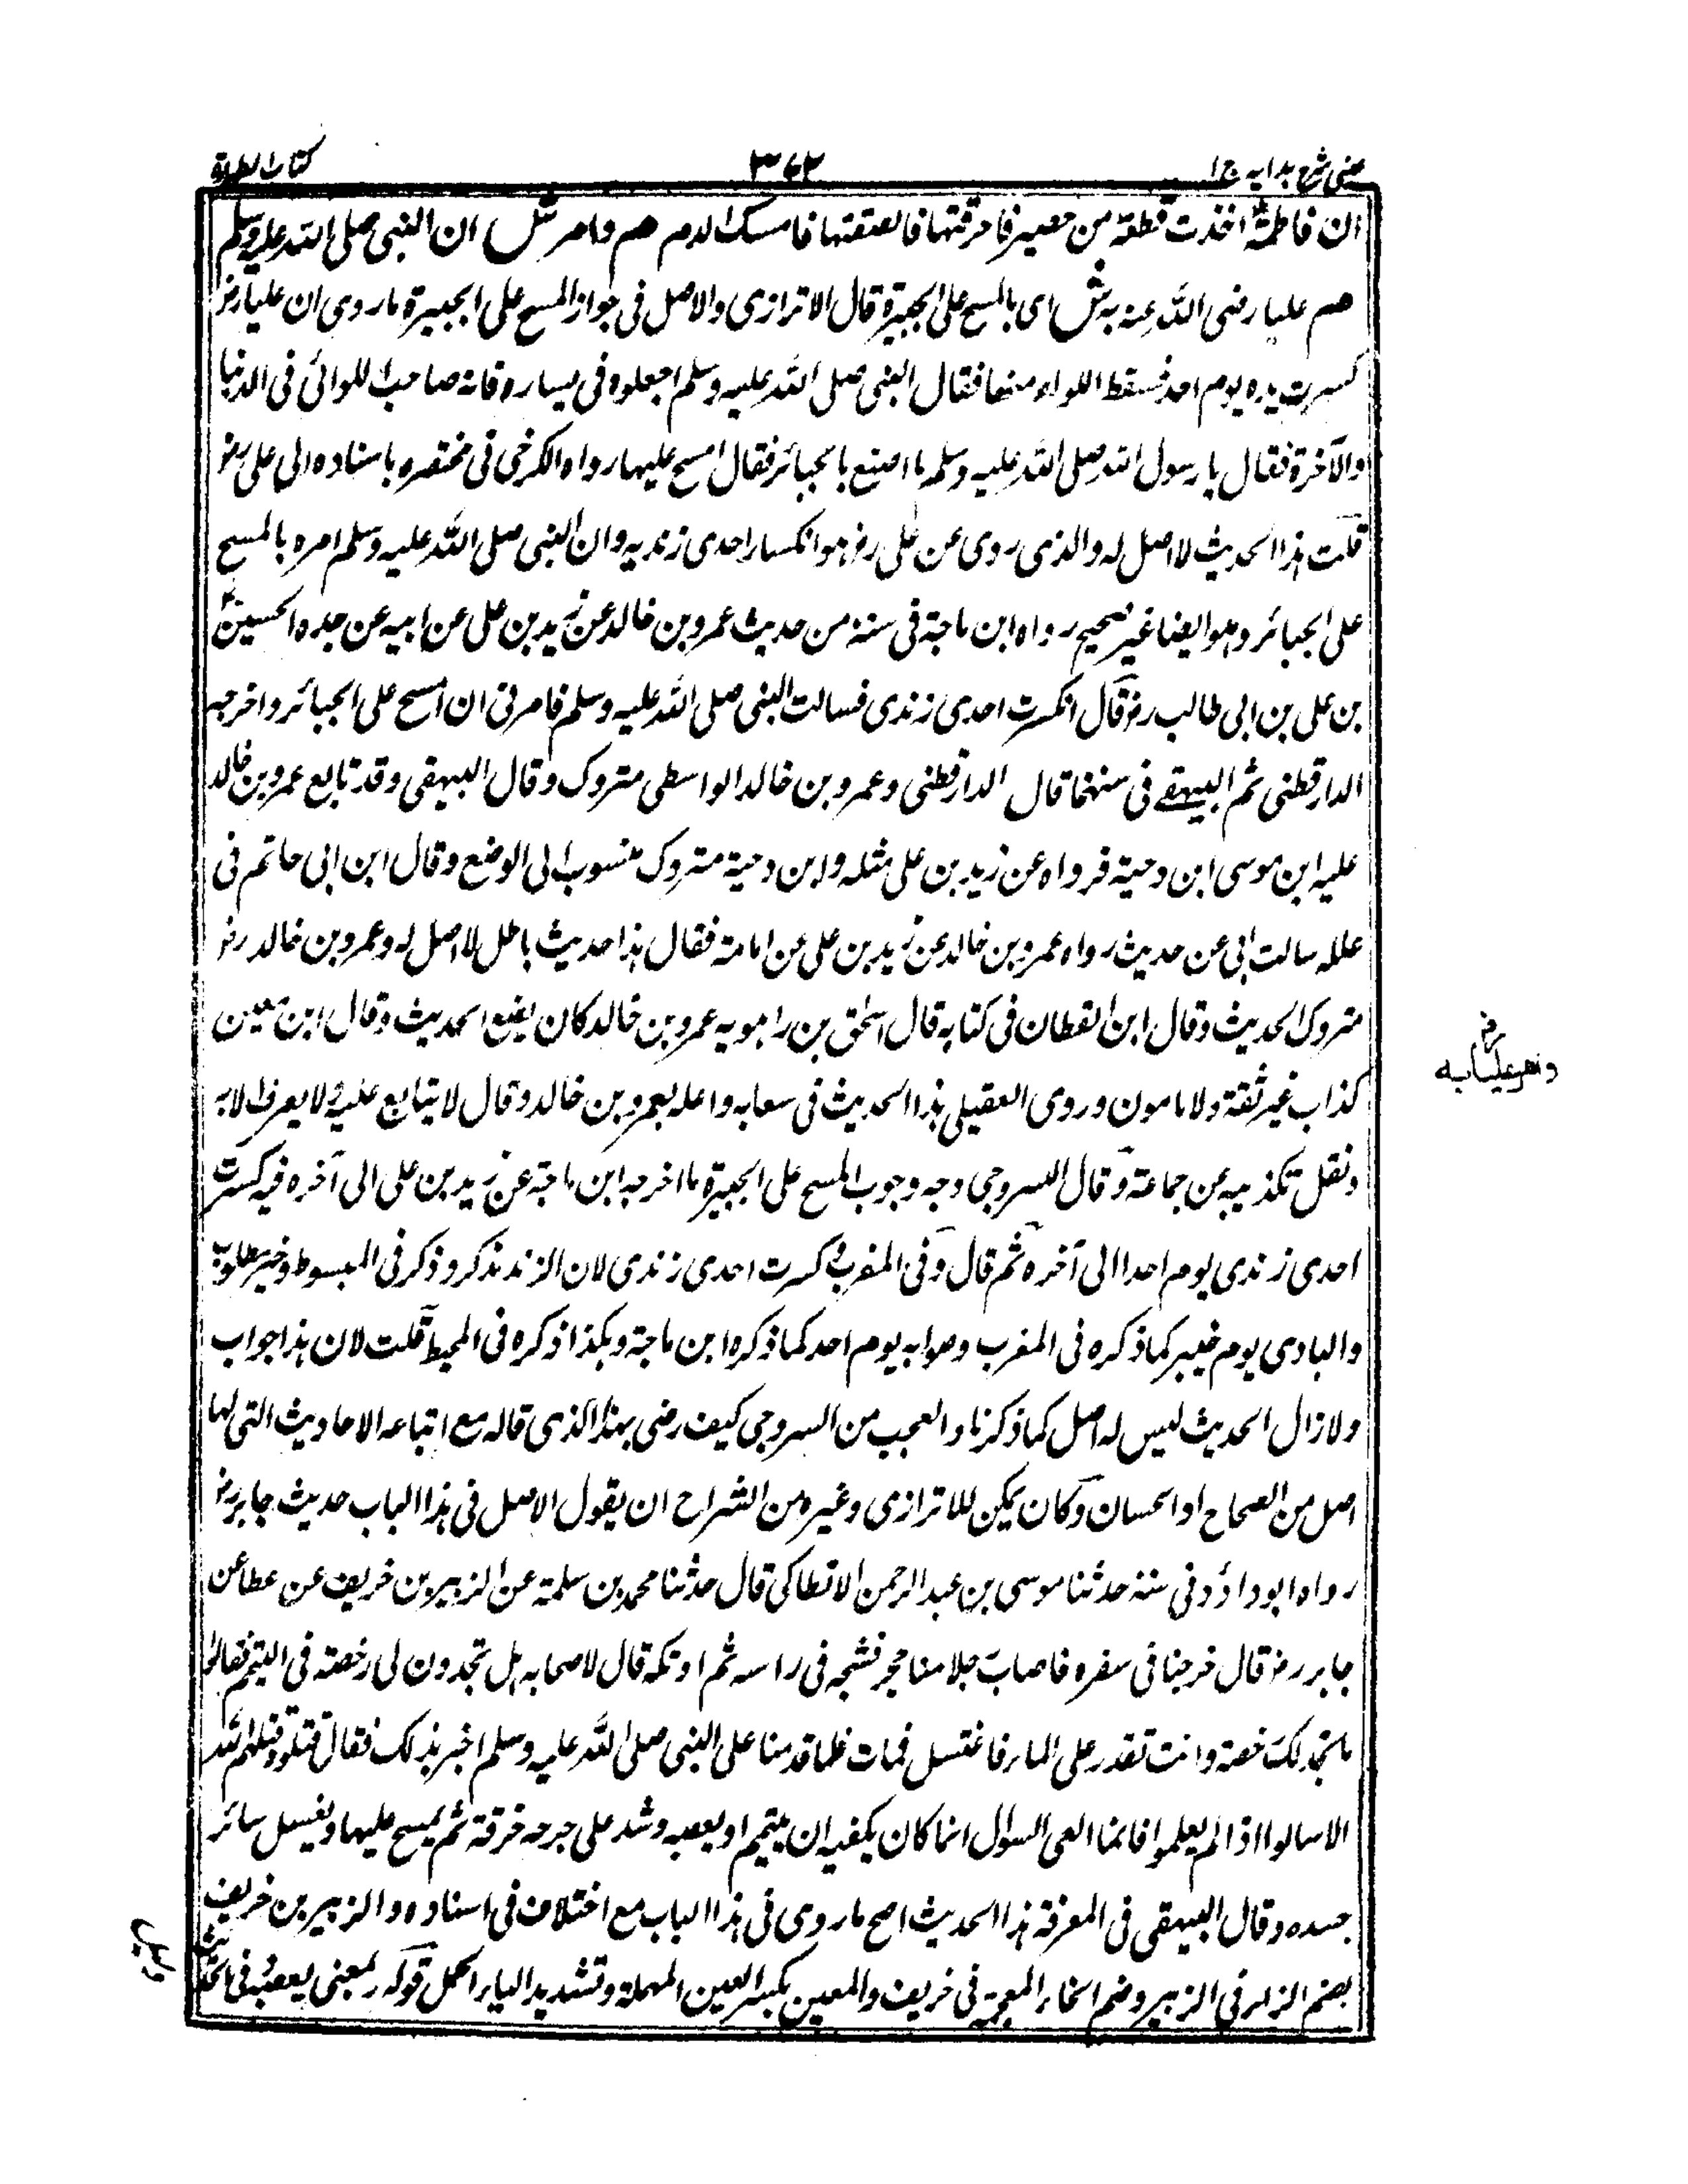 عینی شرح ہدایہ ج ا
۳۶۲
کتاب الطہارة
ان فاطمة اخذت قطعة من حصیر فاحرقتها فالصقتها فامسک الدم هم وامر ش ان النبی صلی اللہ علیہ وسلم
هم علیا رضی اللہ عنه به ش ای بالمسح علی الجبیرة قال الاترازی والاصل فی جواز المسح علی الجبیرة ما روی ان علیا رضہ
کسرت یده یوم احد فسقط اللواء منها فقال النبی صلی اللہ علیہ وسلم اجعلوه فی یساره فانه صاحب اللوائی فی الدنیا
والآخرة فقال یا رسول اللہ صلی اللہ علیہ وسلم ما اصنع بالجبائر فقال امسح علیها رواه الکرخی فی مختصره باسناده الی علی رضہ
قلت هذا الحدیث لا اصل له والذی روی عن علی رضہ هو انکسار احدی زندیه وان النبی صلی اللہ علیہ وسلم امره بالمسح
علی الجبائر وهو ایضا غیر صحیح رواه ابن ماجة فی سننه من حدیث عمرو بن خالد عن زید بن علی عن ابیه عن جده الحسین
بن علی بن ابی طالب رضہ قال انکسرت احدی زندی فسالت النبی صلی اللہ علیہ وسلم فامرنی ان امسح علی الجبائر واخرجه
الدارقطنی ثم البیهقے فی سننهما قال الدارقطنی وعمرو بن خالد الواسطی متروک وقال البیهقی وقد تابع عمرو بن خالد
علیه ابن موسی ابن دحیة فرواه عن زید بن علی مثله وابن دحیة متروک منسوب الی الوضع وقال ابن ابی حاتم فی
علله سالت ابی عن حدیث رواه عمرو بن خالد عن زید بن علی عن امامة فقال هذا حدیث باطل لا اصل له وعمرو بن خالد رضہ
متروک الحدیث وقال ابن القطان فی کتابه قال اسحق بن راهویه عمرو بن خالد کان یضع الحدیث وقال ابن معین
کذاب غیر ثقة ولا مامون وروی العقیلی هذا الحدیث فی سعابه واعله بعمرو بن خالد وقال لا یتابع علیه ولا یعرف الا به
ونقل تکذیبه عن جماعة وقال السروجی وجه وجوب المسح علی الجبیرة ما اخرجه ابن ماجة عن زید بن علی الی آخره فیه کسرت
احدی زندی یوم احد الی آخره ثم قال وفی المغرب کسرت احدی زندی لان الزند مذکر وذکر فی المبسوط وخیر مطلوب
والبادی یوم خیبر کما ذکره فی المغرب وصوابه یوم احد کما ذکره ابن ماجة وهکذا ذکره فی المحیط قلت لان هذا جواب
ولا زال الحدیث لیس له اصل کما ذکرنا والعجب من السروجی کیف رضی بهذا الذی قاله مع اتباعه الاحادیث التی لها
اصل من الصحاح او الحسان وکان یمکن للاترازی وغیره من الشراح ان یقول الاصل فی هذا الباب حدیث جابر رضہ
رواه ابو داؤد فی سننه حدثنا موسی بن عبد الرحمن الانطاکی قال حدثنا محمد بن سلمة عن الزبیر بن خریف عن عطا عن
جابر رضہ قال خرجنا فی سفره فاصاب رجلا منا حجر فشجه فی راسه ثم احتلم قال لاصحابه هل تجدون لی رخصة فی التیمم فقالوا
ما نجد لک رخصة وانت تقدر علی الماء فاغتسل فمات فلما قدمنا علی النبی صلی اللہ علیہ وسلم اخبر بذلک فقال قتلوه قتلهم اللہ
الا سالوا اذا لم یعلموا فانما العی السوال انما کان یکفیه ان یتیمم او یعصبه وشد علی جرحه خرقة ثم یمسح علیها ویغسل سائر
جسده وقال البیهقی فی المعرفة هذا الحدیث اصح ما روی فی هذا الباب مع اختلاف فی اسناده والزبیر بن خریف
بضم الزاء فی الزبیر وضم الخاء المعجمة فی خریف والمعین بکسر العین المهملة وتشدید الیاء الجهل قوله بمعنی یعصب فی
وامر علیا به
رضہ